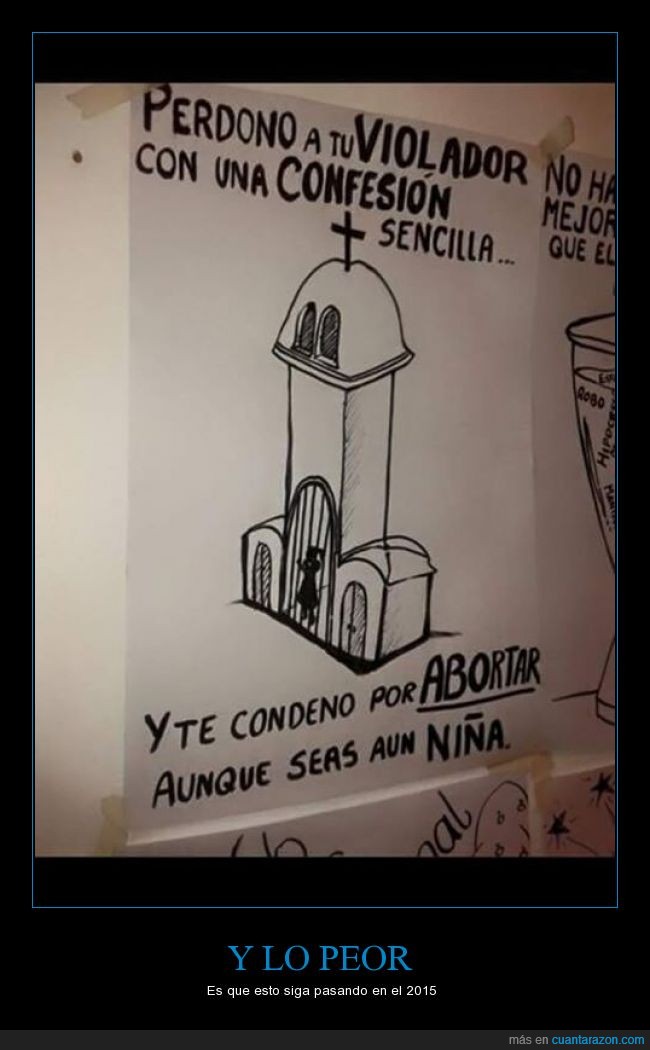 PERDONO A TU VIOLADOR
CON UNA CONFESIÓN
SENCILLA...
Y TE CONDENO POR ABORTAR
AUNQUE SEAS AUN NIÑA.
NO HA
MEJOR
QUE EL
ROBO
Y LO PEOR
Es que esto siga pasando en el 2015
más en cuantarazon.com